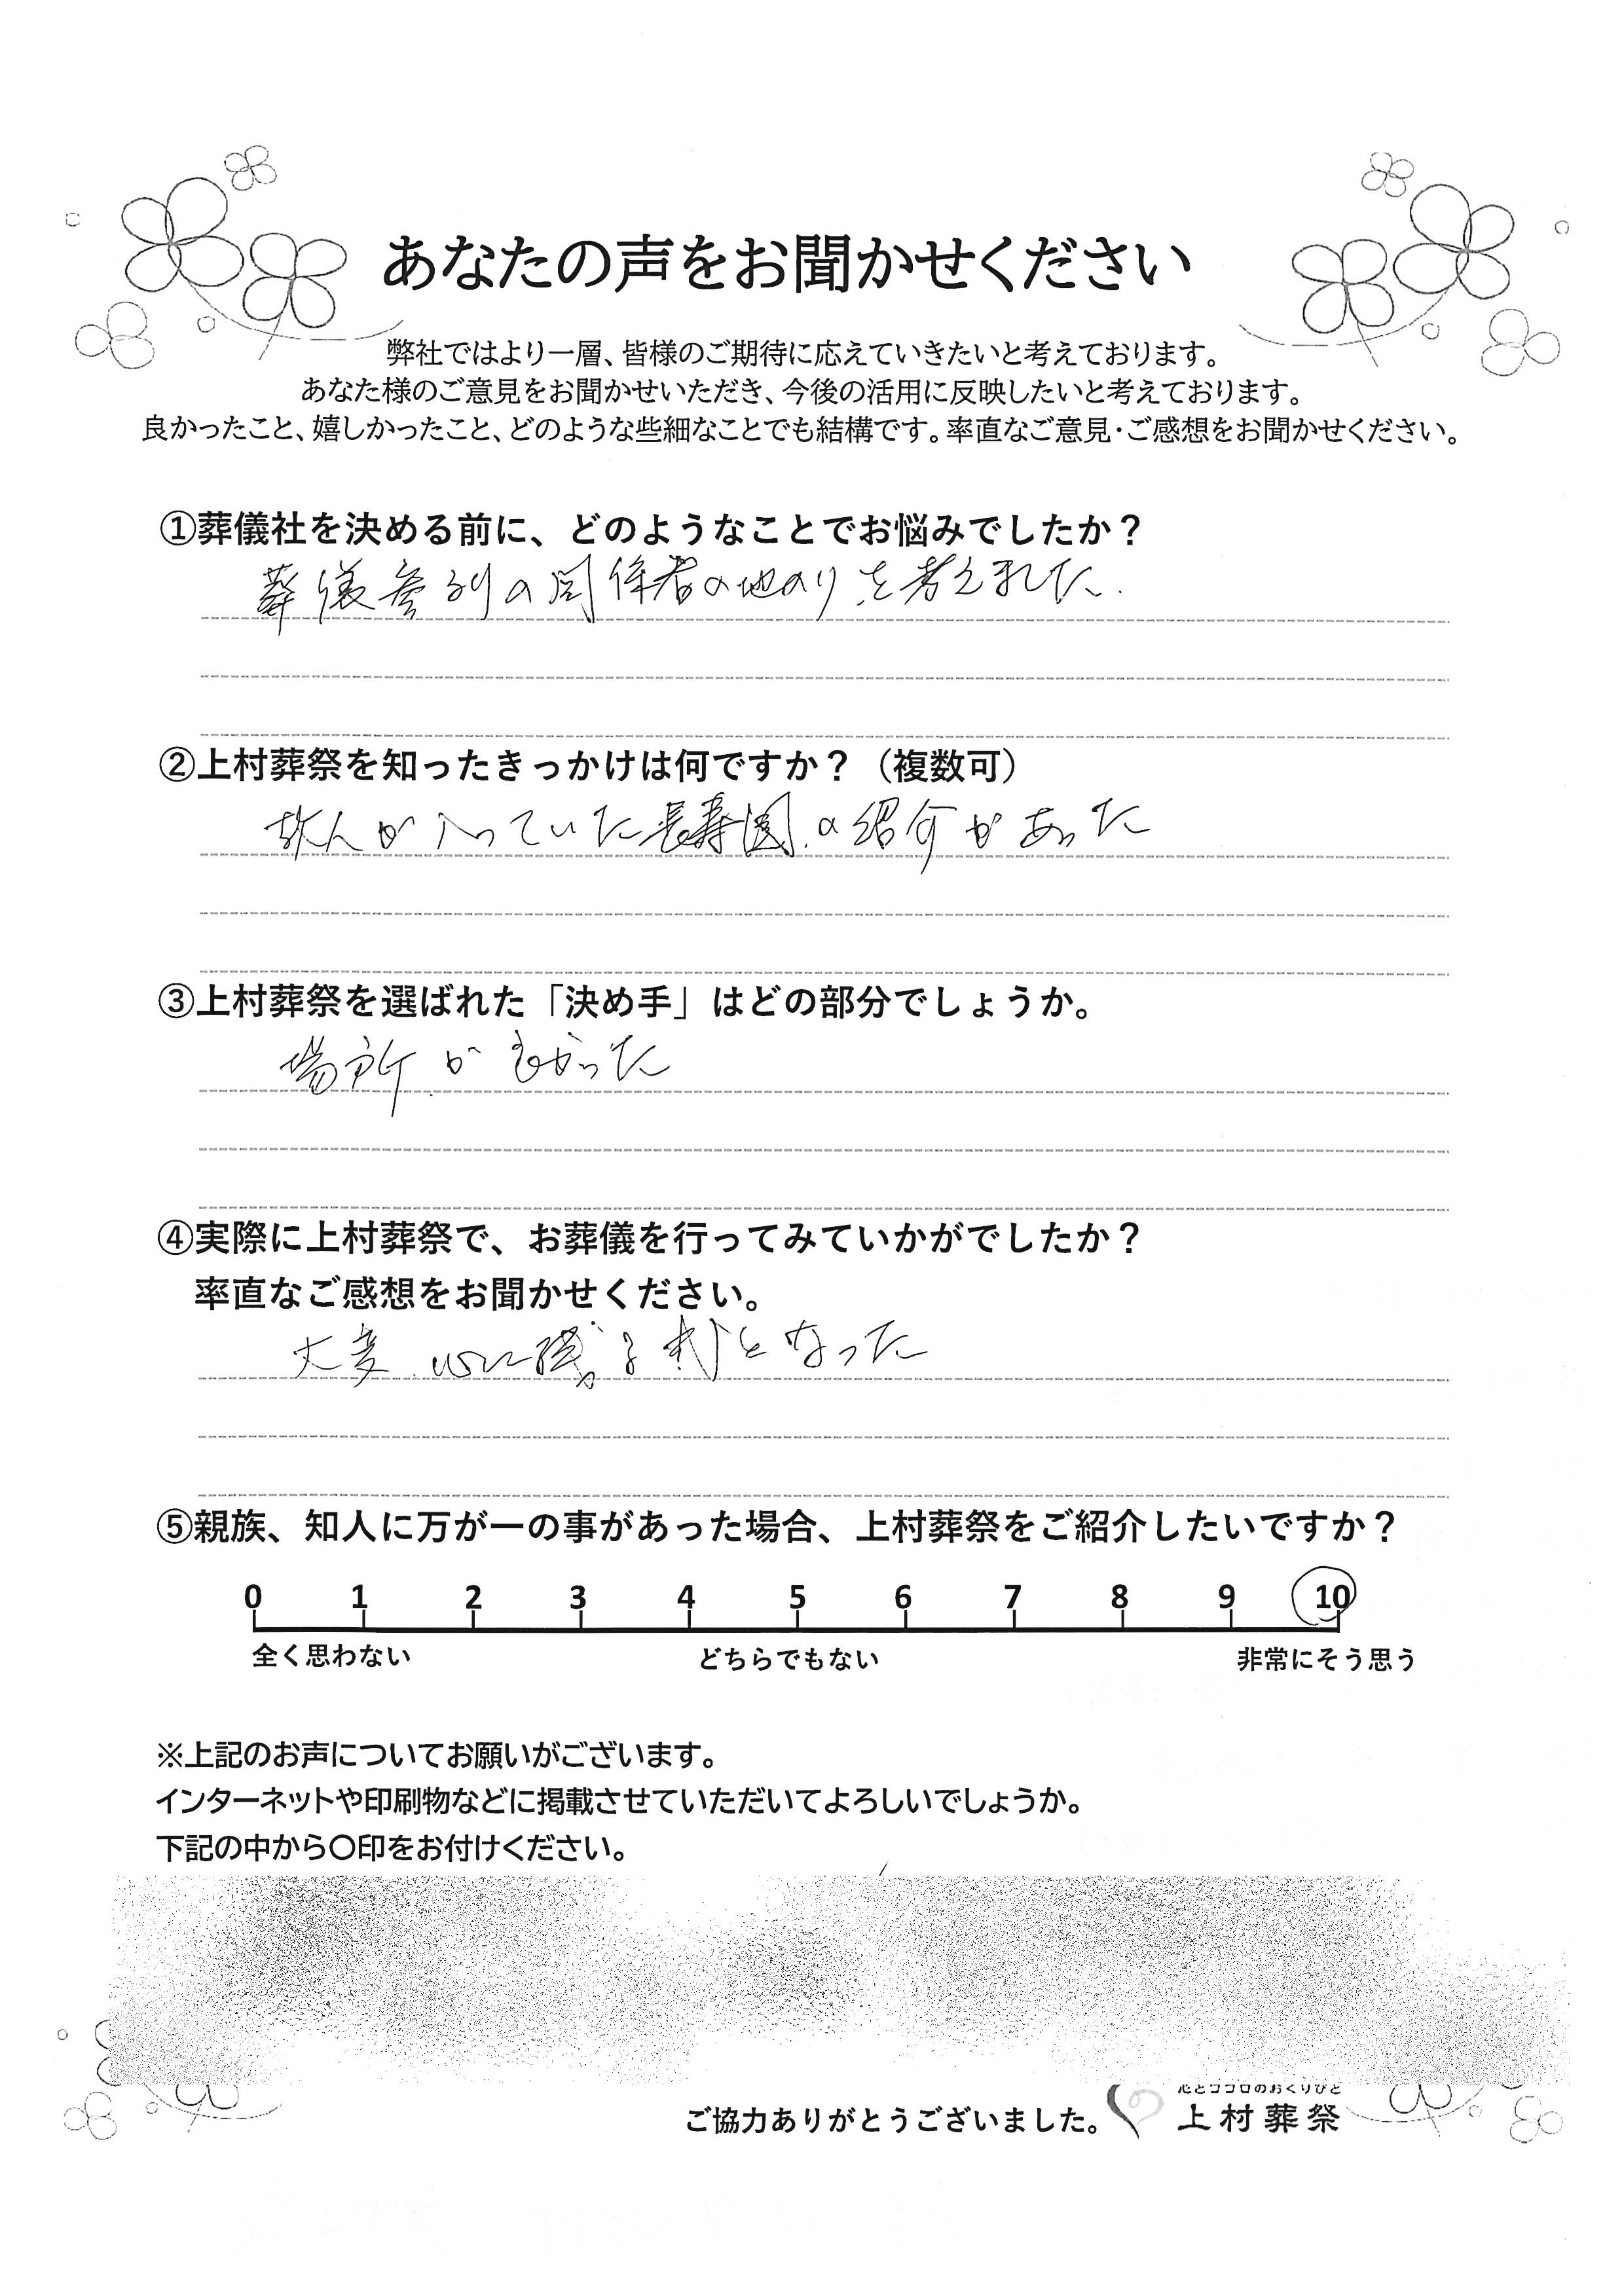 あなたの声をお聞かせください
弊社ではより一層、皆様のご期待に応えていきたいと考えております。
あなた様のご意見をお聞かせいただき、今後の活用に反映したいと考えております。
良かったこと、嬉しかったこと、どのような些細なことでも結構です。率直なご意見・ご感想をお聞かせください。
①葬儀社を決める前に、どのようなことでお悩みでしたか？
葬儀参列の関係者の地のりを考えました.
②上村葬祭を知ったきっかけは何ですか？（複数可）
故人が入っていた長寿園の紹介があった
③上村葬祭を選ばれた「決め手」はどの部分でしょうか。
場所が良かった
④実際に上村葬祭で、お葬儀を行ってみていかがでしたか？
率直なご感想をお聞かせください。
大変心に残る
となった
⑤親族、知人に万が一の事があった場合、上村葬祭をご紹介したいですか？
0 1 2 3 4 5 6 7 8 9 10
全く思わない どちらでもない 非常にそう思う
※上記のお声についてお願いがございます。
インターネットや印刷物などに掲載させていただいてよろしいでしょうか。
下記の中から〇印をお付けください。
心とココロのおくりびと
ご協力ありがとうございました。 上村葬祭